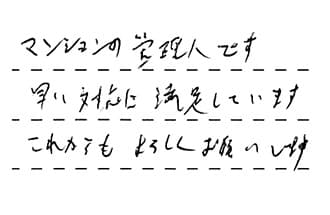 マンションの管理人です
早い対応に満足しています
これからもよろしくお願いします